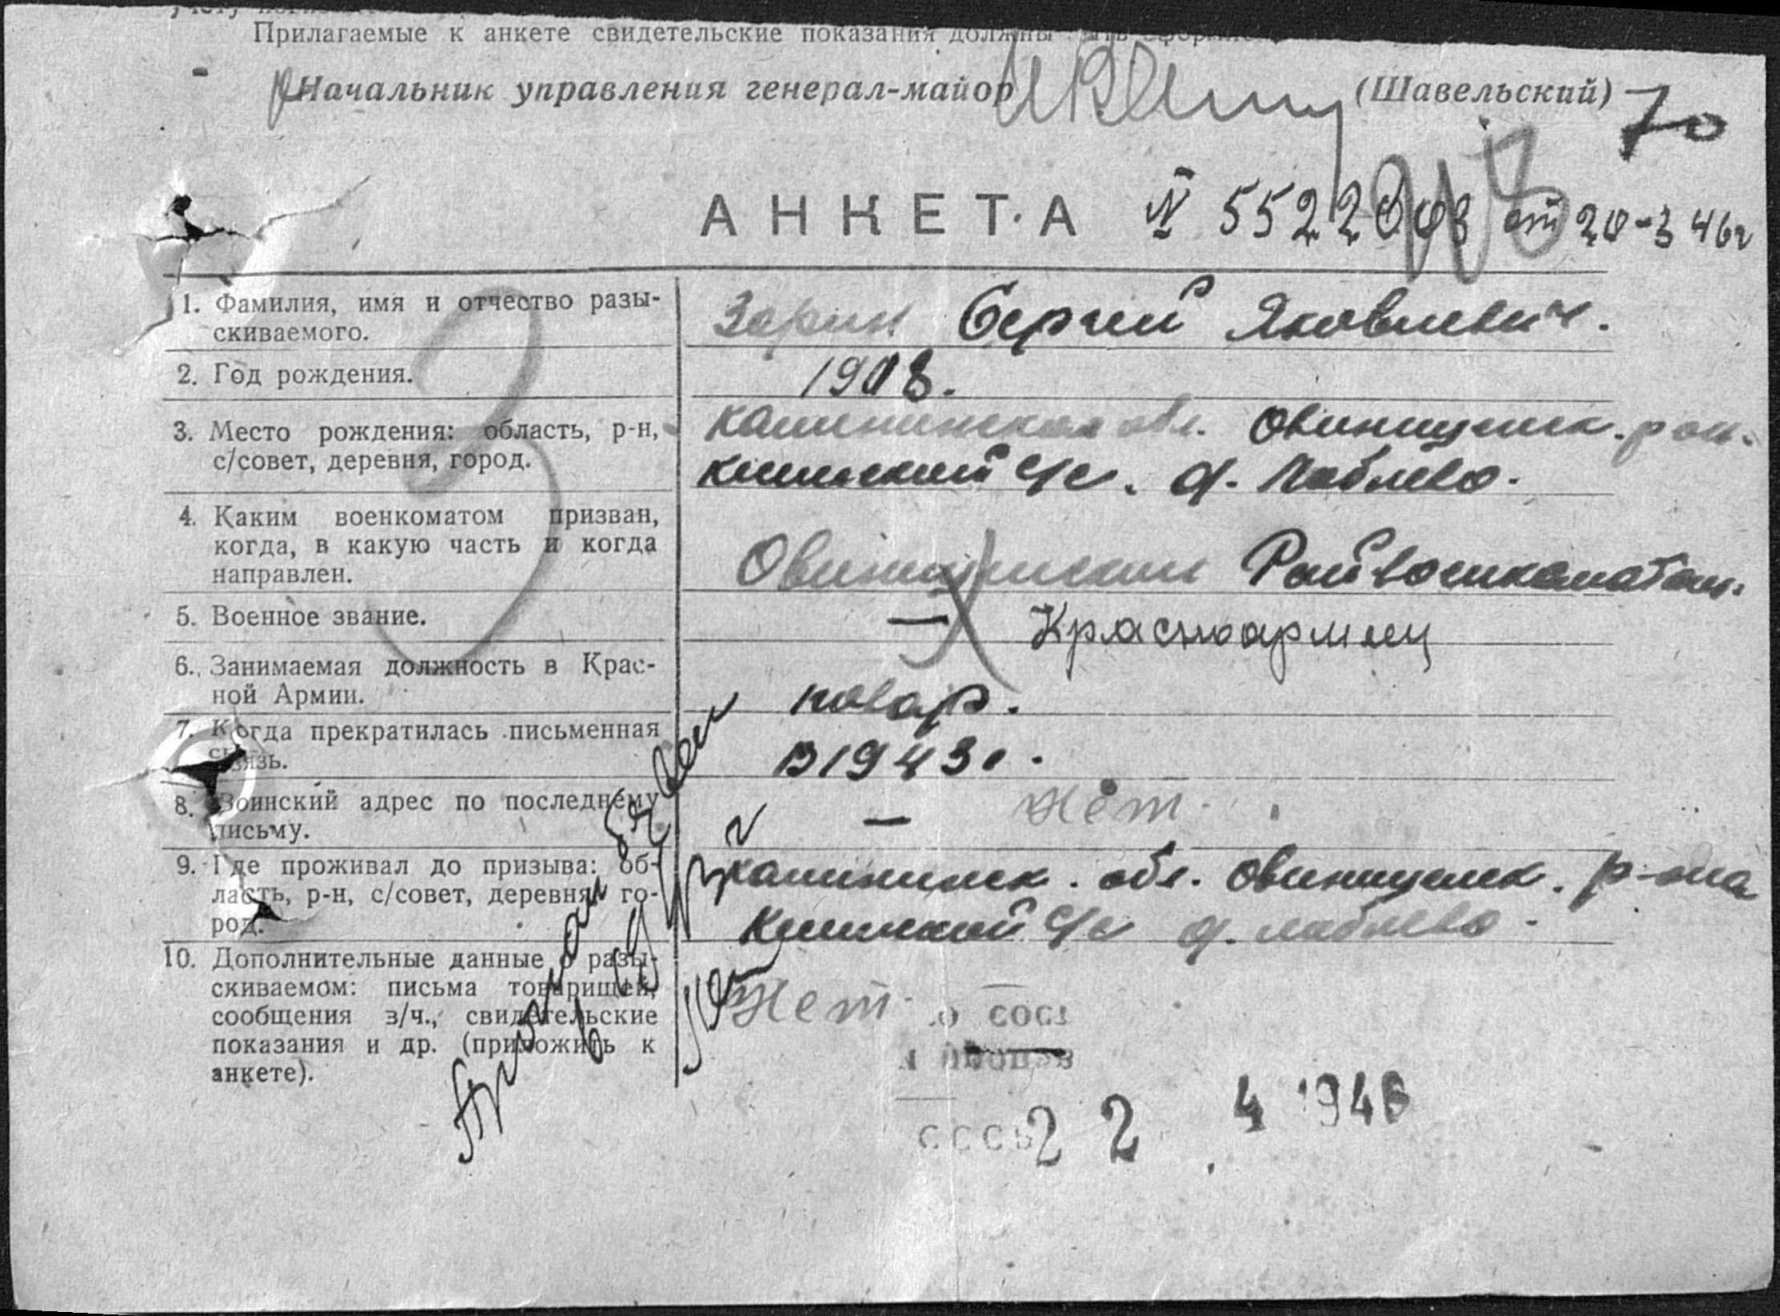 Прилагаемые к анкете свидетельские показания должны
Начальник управления генерал-майор (Шавельский) 70
АНКЕТА № от 20-3 46г
1. Фамилия, имя и отчество разы-
скиваемого.
Зорин Сергей Яковлевич.
2. Год рождения.
1908.
3. Место рождения: область, р-н,
с/совет, деревня, город.
Калининская обл. Овинищенск. рон.
с/с. д.
4. Каким военкоматом призван,
когда, в какую часть и когда
направлен.
Овинищенским Райвоенкоматом.
5. Военное звание.
— Красноармеец
6. Занимаемая должность в Крас-
ной Армии.
повар.
7. Когда прекратилась письменная
связь.
В 1943г.
8. Воинский адрес по последнему
письму.
— Нет
9. Где проживал до призыва: об-
ласть, р-н, с/совет, деревня, го-
род.
Калининск. обл. Овинищенск. р-она
с/с д.
10. Дополнительные данные о разы-
скиваемом: письма товарищей,
сообщения в/ч., свидетельские
показания и др. (приложить к
анкете).
Нет
3
22 4 1946